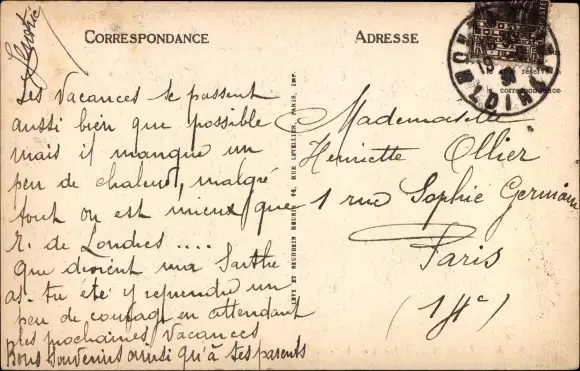 CORRESPONDANCE
ADRESSE
Les Vacances se passent
aussi bien que possible
mais il manque un
peu de chaleur, malgré
tout on est mieux que
r. de Londres ....
Que devient ma Sarthe
as-tu été y reprendre un
peu de courage en attendant
les prochaines Vacances
Bons Souvenirs ainsi qu'à tes parents
LEVY ET NEURDEIN REUNIS, 44, RUE LETELLIER, PARIS, IMP.
côté réservé à
la correspondance
Mademoiselle
Henriette Ollier
1 rue Sophie Germain
Paris
(14e)